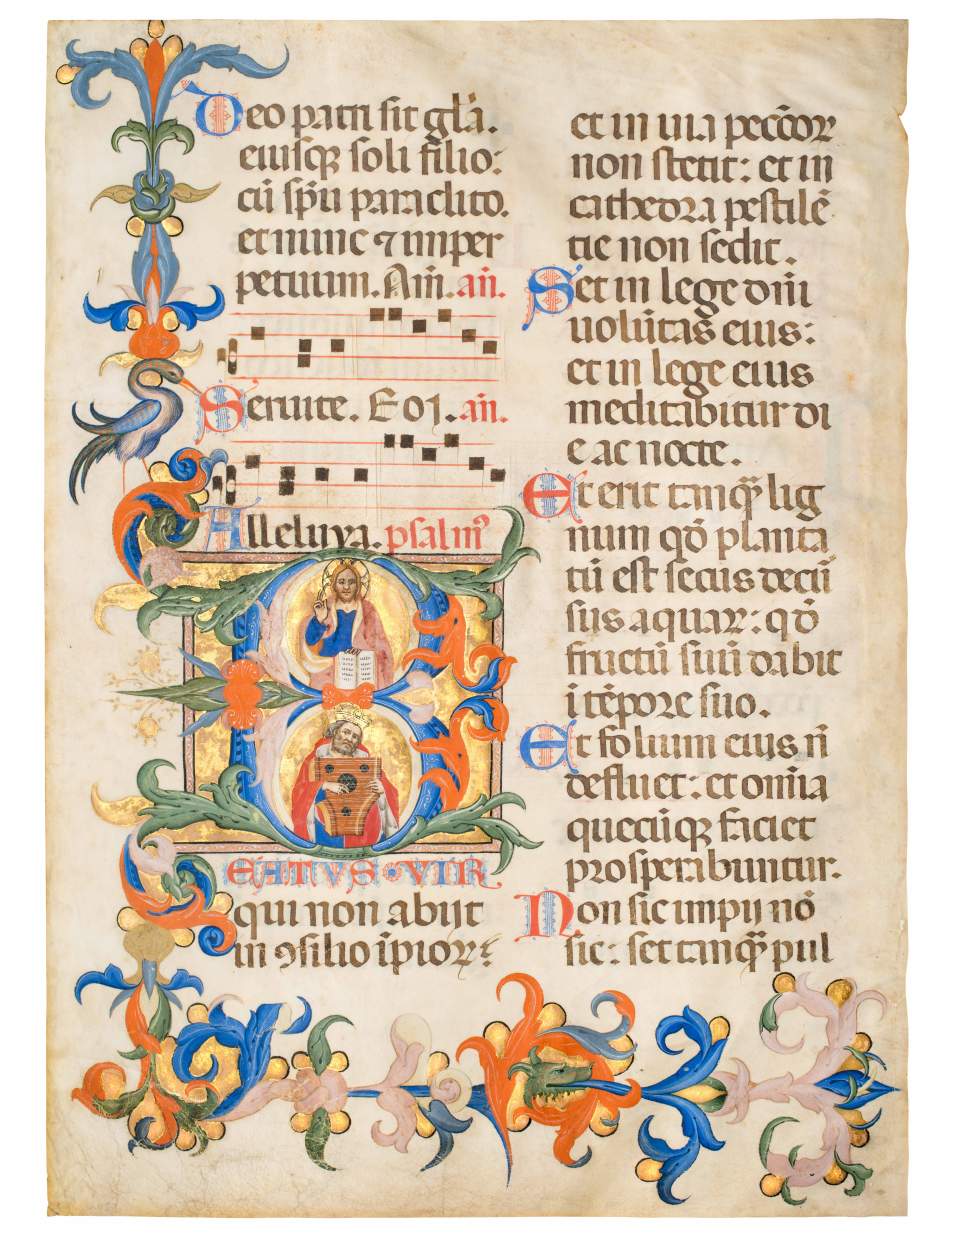 Deo patri sit gl̄a.
eiusqꝫ soli filio:
cū sp̄u paraclito.
et nunc ⁊ in per
petuum. Am̄. an̄.
Seruite. Eoı. an̄.
Alleluya. psalmꝰ
BEATVS VIR
qui non abijt
in ꝯsilio īpioꝝ:
et in uia pecc̄oꝝ
non stetit: et in
cathedra pestilē
tie non sedit.
Set in lege dn̄i
uolūtas eius:
et in lege eius
meditabitur di
e ac nocte.
Et erit tanqꝫ lig
num qđ planta
tū est secus decur̄
sus aquaꝝ: qđ
fructū suū dabit
ī tēpore suo.
Et folium eius n̄
defluet: et omīa
quecūqꝫ faciet
prosperabuntur.
Non sic impij nō
sic: set tanqꝫ pul